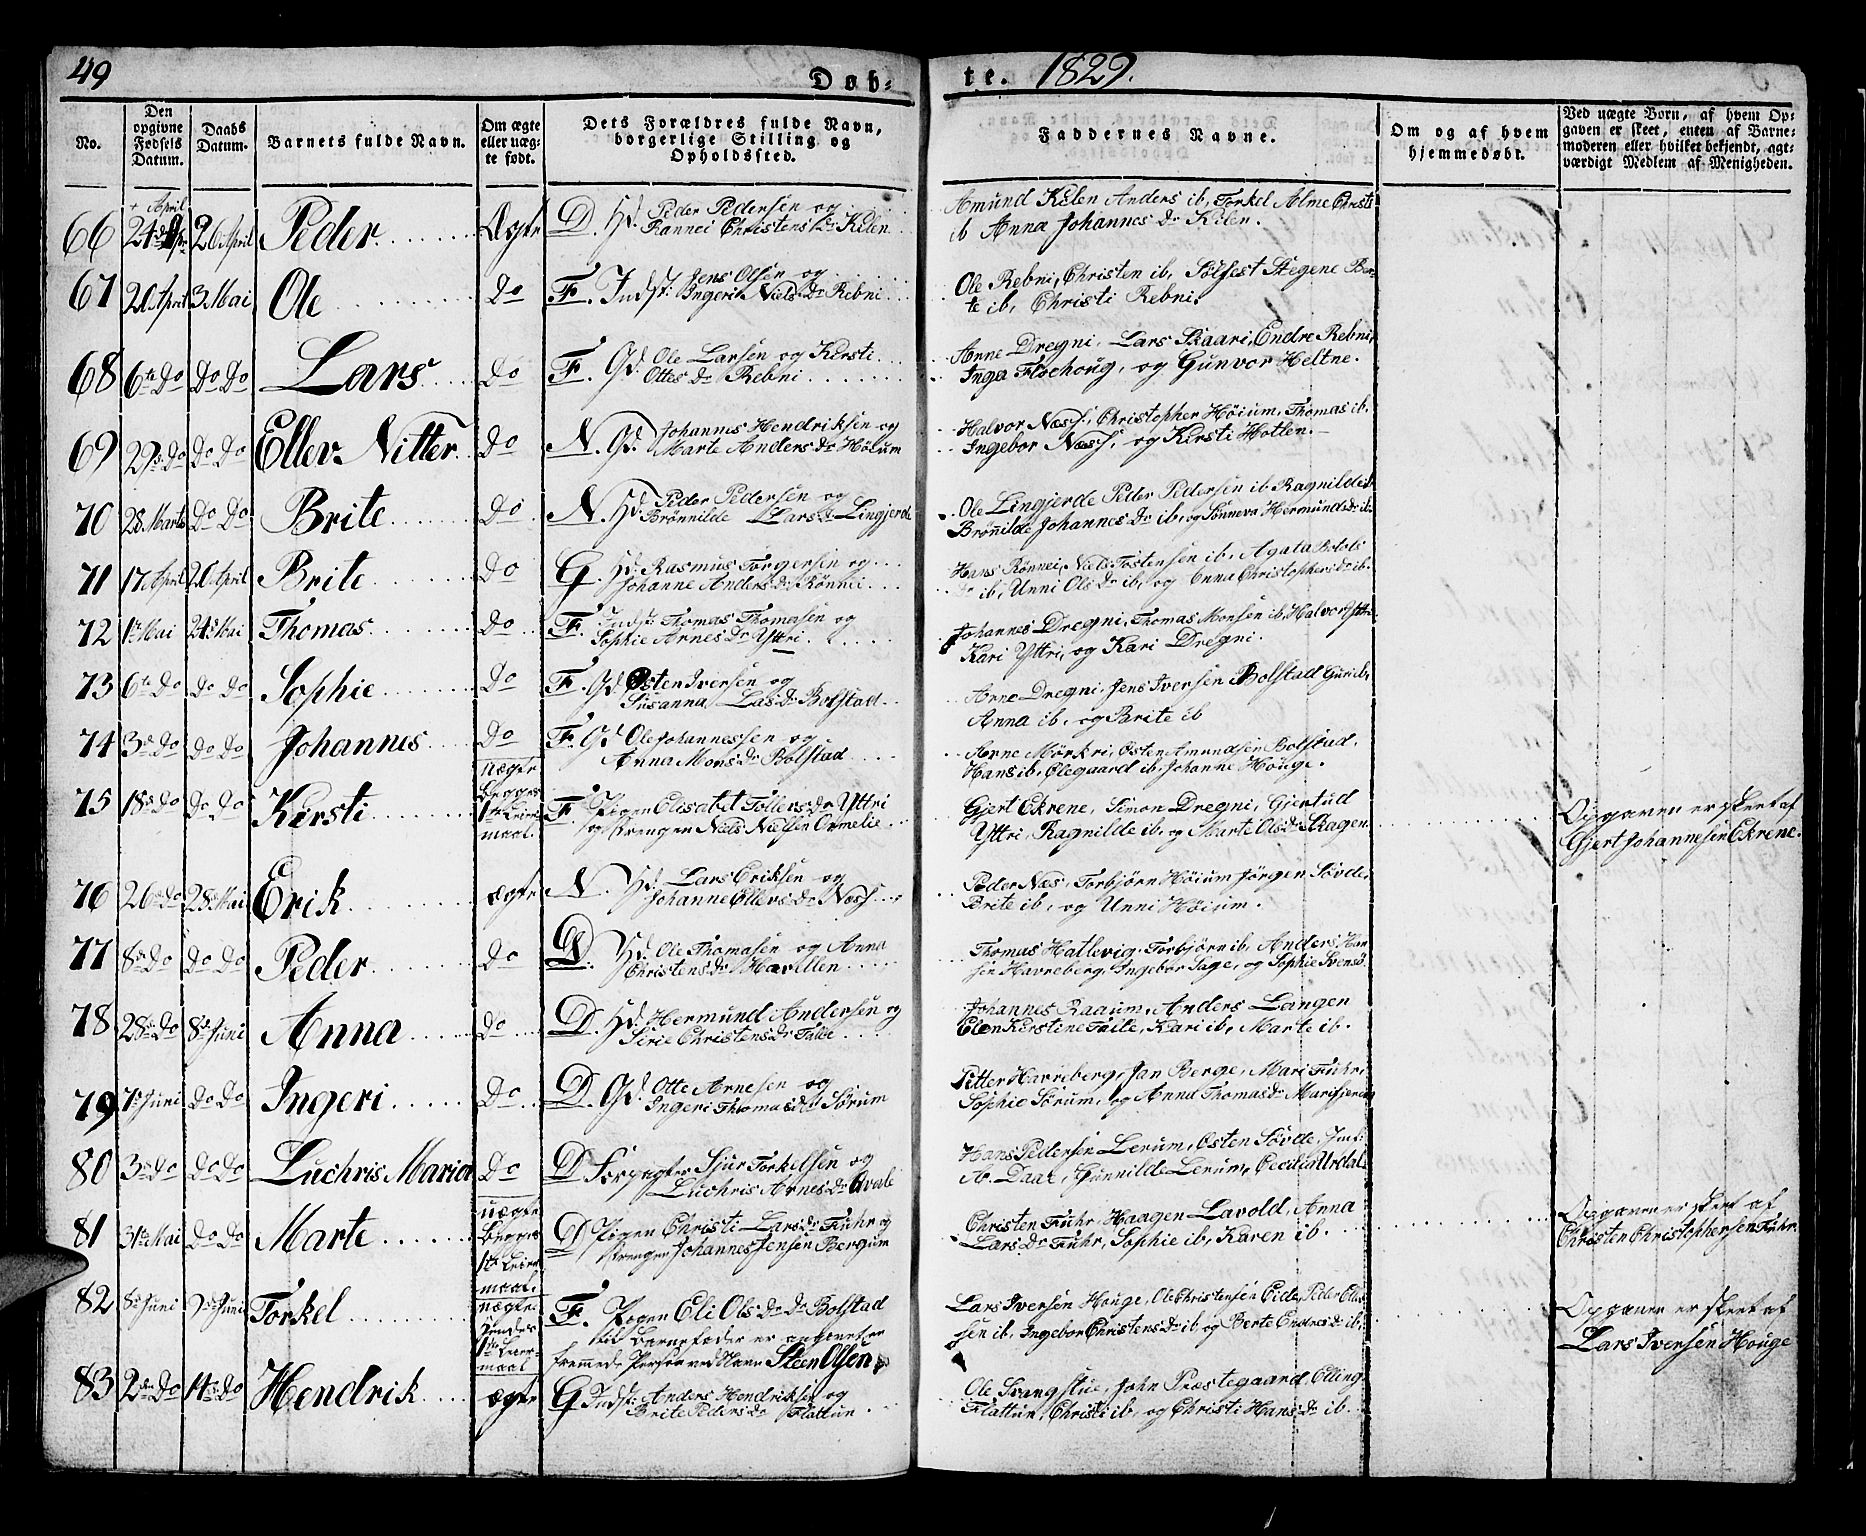 49
Døb-
te. 1829.
No.
Den opgivne Fødsels Datum.
Daabs Datum.
Barnets fulde Navn.
Om ægte eller uægte født.
Dets Forældres fulde Navn, borgerlige Stilling og Opholdssted.
Faddernes Navne.
Om og af hvem hjemmedøbt.
Ved uægte Børn, af hvem Opgaven er skeet, enten af Barnemoderen eller hvilket bekjendt, agtværdigt Medlem af Menigheden.
66 24de April 26 April Peder Ægte D. Hd. Peder Pedersen og
Christens Dr Kilen
Amund Kilen Anders ib, Torkel Alme Christi
ib Anna Johannes Dr Kilen.
67 20 April 3 Mai Ole Do F. Indst: Jens Olsen og
Ingeri Niels Dr Rebni
Ole Rebni, Christen ib, Sølfest Stegene Beri-
te ib, Christi Rebni.
68 6te Do Do Do Lars Do F. Gd. Ole Larsen og Kirsti
Ottes Dr Rebni
Arne Dregni, Lars Skaari, Endre Rebni,
Inga Flohoug, og Gunvor Heltne.
69 29s Do Do Do Ellev Nitter Do N. Gd. Johannes Hendriksen og
Marte Anders Dr Høium
Halvor Næss, Christopher Høium, Thomas ib.
Ingebor Næss, og Kirsti Hotlen.
70 28 Marts Do Do Brite Do N. Hd. Peder Pedersen og
Brønnilde Lars Dr Lingjerde
Ole Lingjerde Peder Pedersen ib Ragnilde ib
Brønilde Johannes Dr ib, og Sønneva Hermunds Dr ib.
71 17 April 20 April Brite Do G. Hd. Rasmus Torgersen og
Johanne Anders Dr Rønnei
Hans Rønnei, Niels Tostensen ib, Agata
ib, Unni Ols Dr ib, og Anna Christophers Dr ib.
72 1s Mai 24s Mai Thomas Do F. Indst: Thomas Thomasen og
Sophie Arnes Dr Yttri
Johannes Dregni, Thomas Monsen ib, Halvor Yttri
Kari Yttri, og Kari Dregni.
73 6te Do Do Do Sophie Do F. Gd Østen Iversen og
Susanna Las Dr Bolstad
Arne Dregni, Jens Iversen Bolstad Guri ib,
Anna ib, og Barite ib
74 3s Do Do Do Johannes Do F. Gd Ole Johannessen og
Anna Mons Dr Bolstad
Arne Mørkri, Østen Amundsen Bolstad,
Hans ib, Olegaard ib, Johanne Houge.
75 18s Do Do Do Kirsti uægte
Begges
1ste Leier-
maal.
F. Pigen Elisabet Tollevs Dr Yttri
og Drengen Niels Nielsen Ormelie
Gjert Ekrene, Simon Dregni, Gjertud
Yttri, Ragnilde ib, og Marte Ols Dr Skagen
Opgaven er skeet af
Gjert Johannesen Ekrene.
76 26s Do 28s Mai Erik ægte N. Hd. Lars Eriksen og
Johanne Ellevs Dr Næss
Peder Næs, Torbjørn Høium Jørgen Søvde,
Brite ib, og Unni Høium.
77 8s Do Do Do Peder Do D. Hd. Ole Thomasen og Anna
Christens Dr Havillen
Thomas Hatlevig, Torbjørn ib, Anders Han-
sen Havreberg, Ingebor Sage, og Sophie Svensø.
78 28s Do 8s Juni Anna Do D. Hd. Hermund Andersen og
Sirie Christens Dr Talle
Johannes Raaum, Anders Langen
Elen Kirstine Talle, Kari ib, Marte ib.
79 1s Juni Do Do Ingeri Do D. Gd. Otte Arnesen og
Ingeri Thomas Dr Sørum
Petter Havreberg, Jan Berge, Mari Fuhr,
Sophie Sørum, og Anna Thomas Dr Marifjeren
80 3s Do Do Do Luchris Maria Do D Forpagter Sjur Torkelsen og
Luchris Arnes Dr Qvale
Hans Pedersen Lerum, Østen Søvde,
A. Daae, Gunnilde Lerum, Cecilia Urdal.
81 31te Mai Do Do Marte uægte
Begges
1ste Leier-
maal.
D Pigen Christi Lars Dr Fuhr og
Drengen Johannes Jensen Bergum
Christen Fuhr, Haagen Lavold, Anna
Lars Dr Fuhr, Sophie ib, Karen ib.
Opgaven er skeet af
Christen Christophersen Fuhr.
82 8s Juni 9s Juni Torkel uægte.
Hendes
1ste Leier-
maal
F. Pigen Eli Ols Dr Bolstad
til Barnefader er angivet en
fremmed Person ved Navn Steen Olsen
Lars Iversen Houge, Ole Christensen Eide, Peder Elles-
sen ib, Ingebor Christens Dr ib og Berte Endres Dr ib,
Opgaven er skeet af
Lars Iversen Houge
83 2s Do 14s Do Hendrik ægte G Indst: Anders Hendriksen og
Brite Peders Dr Flattun
Ole Svangstue, John Præstegaard, Elling
Flattun, Christi ib, og Christi Hans Dr ib.